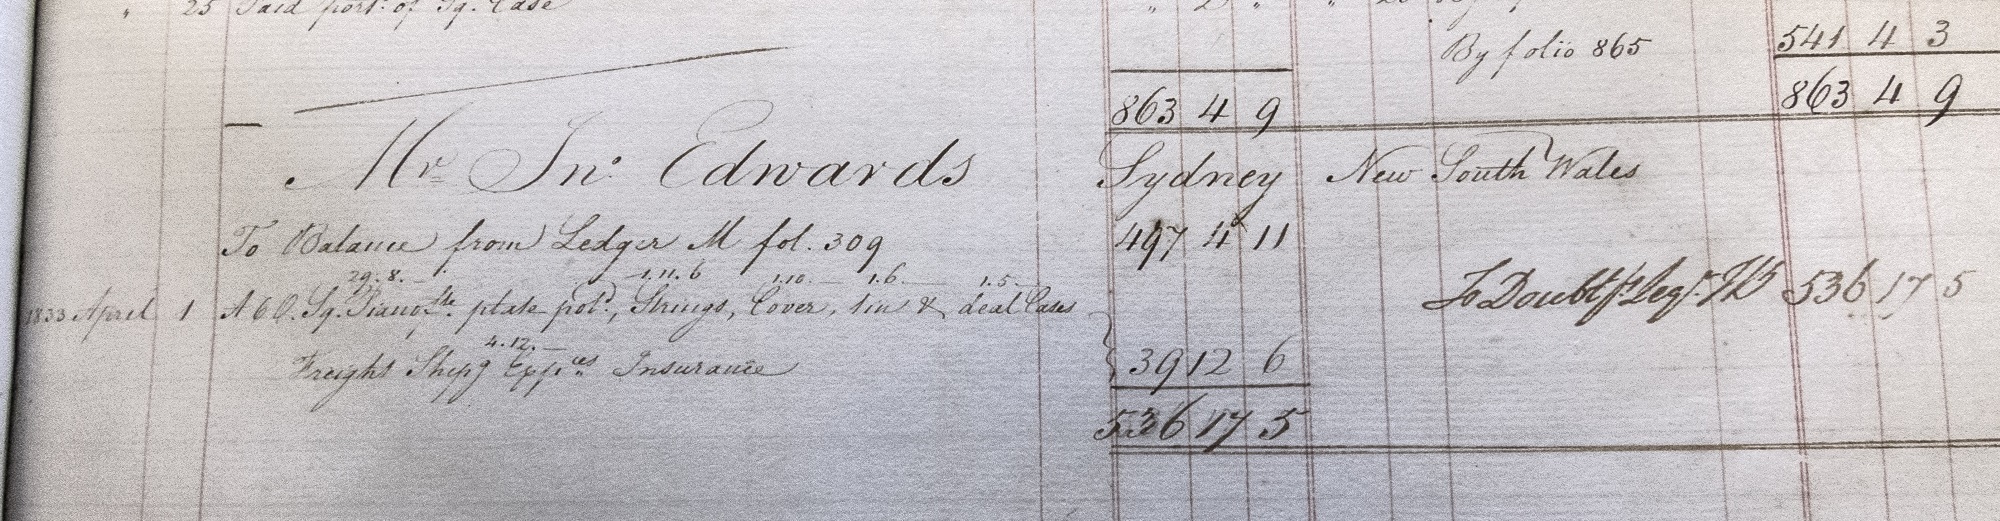 " 25 Paid port. of Sq. Case
By folio 865 541 4 3
863 4 9 863 4 9
Mr Jno. Edwards Sydney New South Wales
To Balance from Ledger M fol. 309 497 4 11
29.8.— 1.11.6 1.10.— 1.6.— 1.5.—
1833 April 1 A 6 O. Sq. Pianofte. plate pold., Strings, Cover, tin & deal Cases
To Doubtf. Legr. 536 17 5
4.12.—
Freight Shipg Expces Insurance 39 12 6
536 17 5